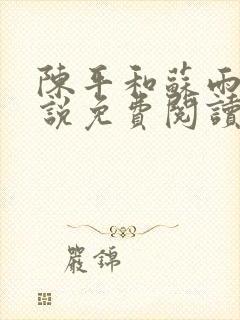 陳平和蘇雨
說免費閱讀
嚴錦